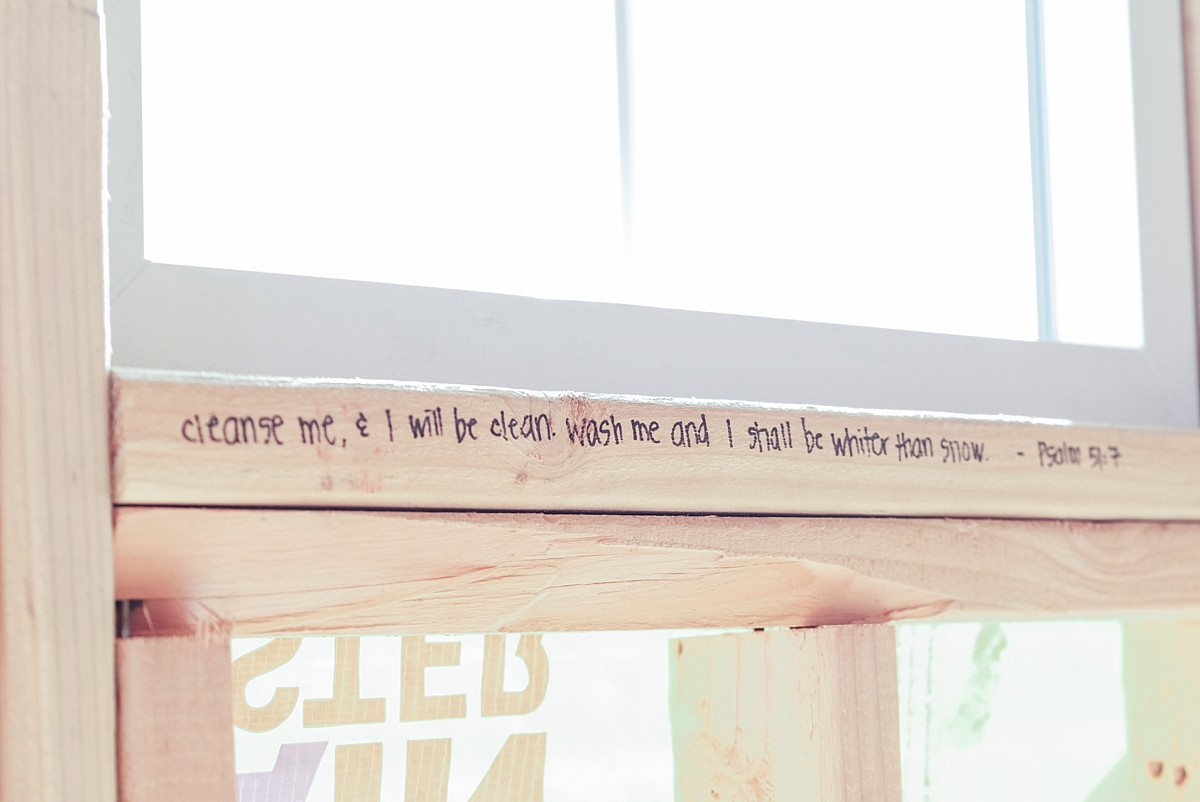 cleanse me, & I will be clean. wash me and I shall be whiter than snow. - Psalm 51:7